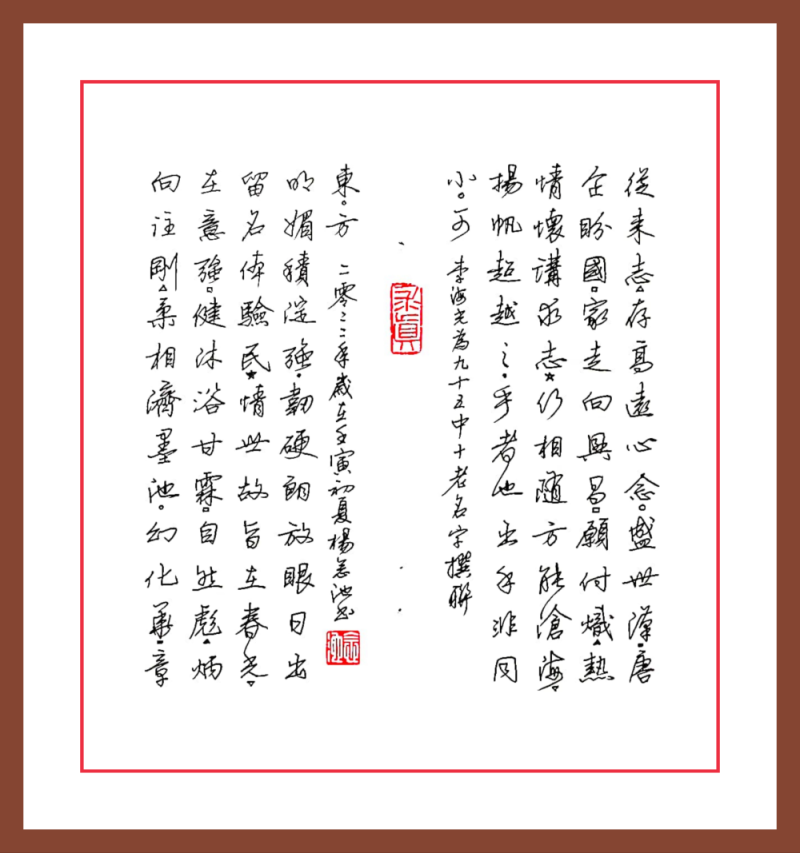 從来志存高遠心念盛世漢唐
企盼國家走向興昌願付熾熱
情懷講求志行相隨方能滄海
揚帆超越之乎者也出手非同
小可 李海光為九十五中十老名字撰聯
求真
向注剛柔相濟墨池幻化華章
在意強健沐浴甘霖自然彪炳
留名体驗民情世故旨在春光
明媚積淀強韌硬朗放眼日出
東方 二零二二年歲在壬寅初夏楊志池书